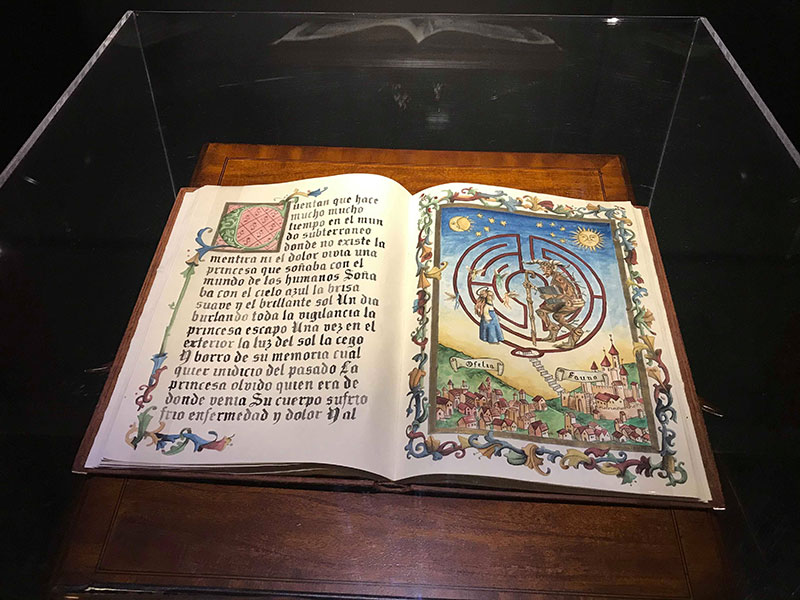 Cuentan que hace
mucho mucho
tiempo en el mun
do subterraneo
donde no existe la
mentira ni el dolor vivia una
princesa que soñaba con el
mundo de los humanos Soña
ba con el cielo azul la brisa
suave y el brillante sol Un dia
burlando toda la vigilancia la
princesa escapo Una vez en el
exterior la luz del sol la cego
Y borro de su memoria cual
quier inidicio del pasado La
princesa olvido quien era de
donde venia Su cuerpo sufrio
frio enfermedad y dolor Y al
Ofelia
Fauno